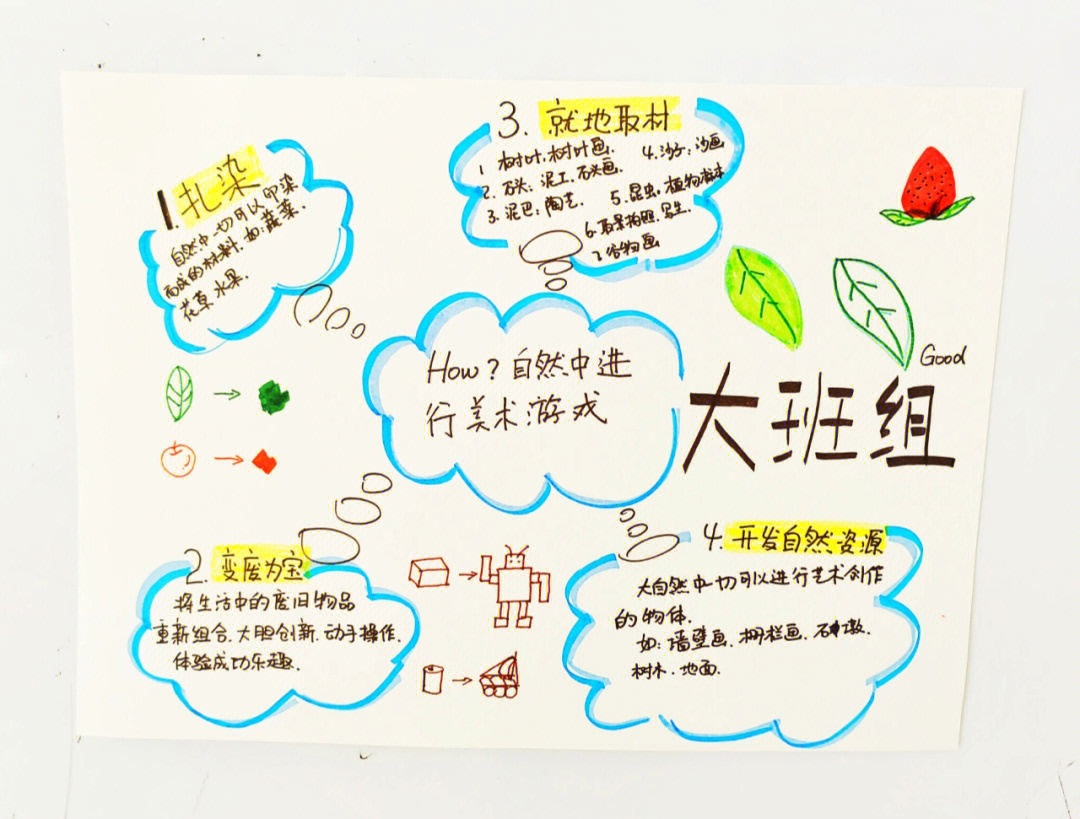 How？自然中进
行美术游戏
1.扎染
自然中一切可以印染
而成的材料.如:蔬菜.
花草.水果.
2.变废为宝
将生活中的废旧物品
重新组合.大胆创新.动手操作.
体验成功乐趣.
3.就地取材
1 树叶.树叶画.
2.石头：泥工.石头画.
3.泥巴：陶艺.
4.沙子：沙画
5.昆虫.植物标本
6.取景拍照.写生.
7.谷物画
4.开发自然资源
大自然中一切可以进行艺术创作
的物体.
如：墙壁画.栅栏画.石墩.
树木.地面.
Good
大班组